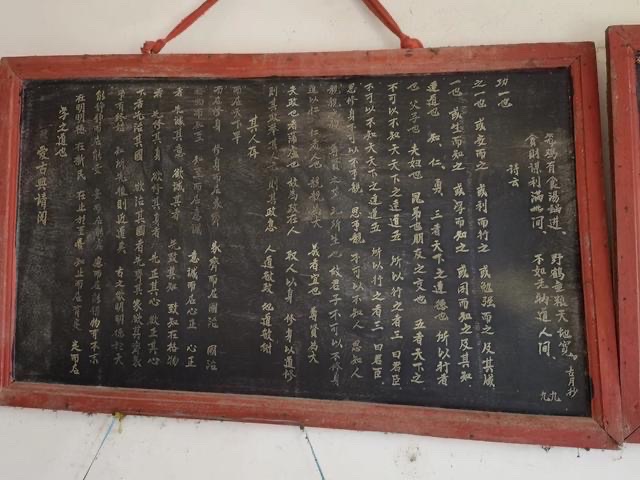 愛古典請閱
學之道也
在明明德 在新民 在止于至善 知止而后有定 定而后
能靜 靜而后能安 安而后能慮 慮而后能得 物有本末
事有終始 知所先后 則近道矣 古之欲明明德於天
下者先治其國 欲治其國者先齊其家 欲齊其家
者 先修其身 欲修其身者 先正其心 欲正其心
者 先誠其意 欲誠其意者 先致其知 致知在格物
物格而后知至 知至而后意誠 意誠而后心正 心正
而后身修 身修而后家齊 家齊而后國治 國治
而后天下平
其人存
則其政舉 其人亡 則其政息 人道敏政 地道敏樹
夫政也者蒲盧也 故為政在人 取人以身 修身以道 修
道以仁 仁者人也 親親為大 義者宜也 尊賢為大
親親 尊賢 禮所生也 故君子不可以不修身
思修身不可以不事親 思事親 不可以不知人 思知人
不可以不知天 天下之達道五 所以行之者三 曰君臣
也 父子也 夫婦也 昆弟也 朋友之交也 五者天下之
達道也 知、仁、勇 三者天下之達德也 所以行者
一也 或生而知之 或學而知之 或困而知之 及其知
之一也 或安而行之 或利而行之 或勉強而行之 及其成
功一也
詩云
貪財謀利滿世間 不如老衲道人間
有食湯鍋近、野鶴無粮天地寬
古月抄
九九